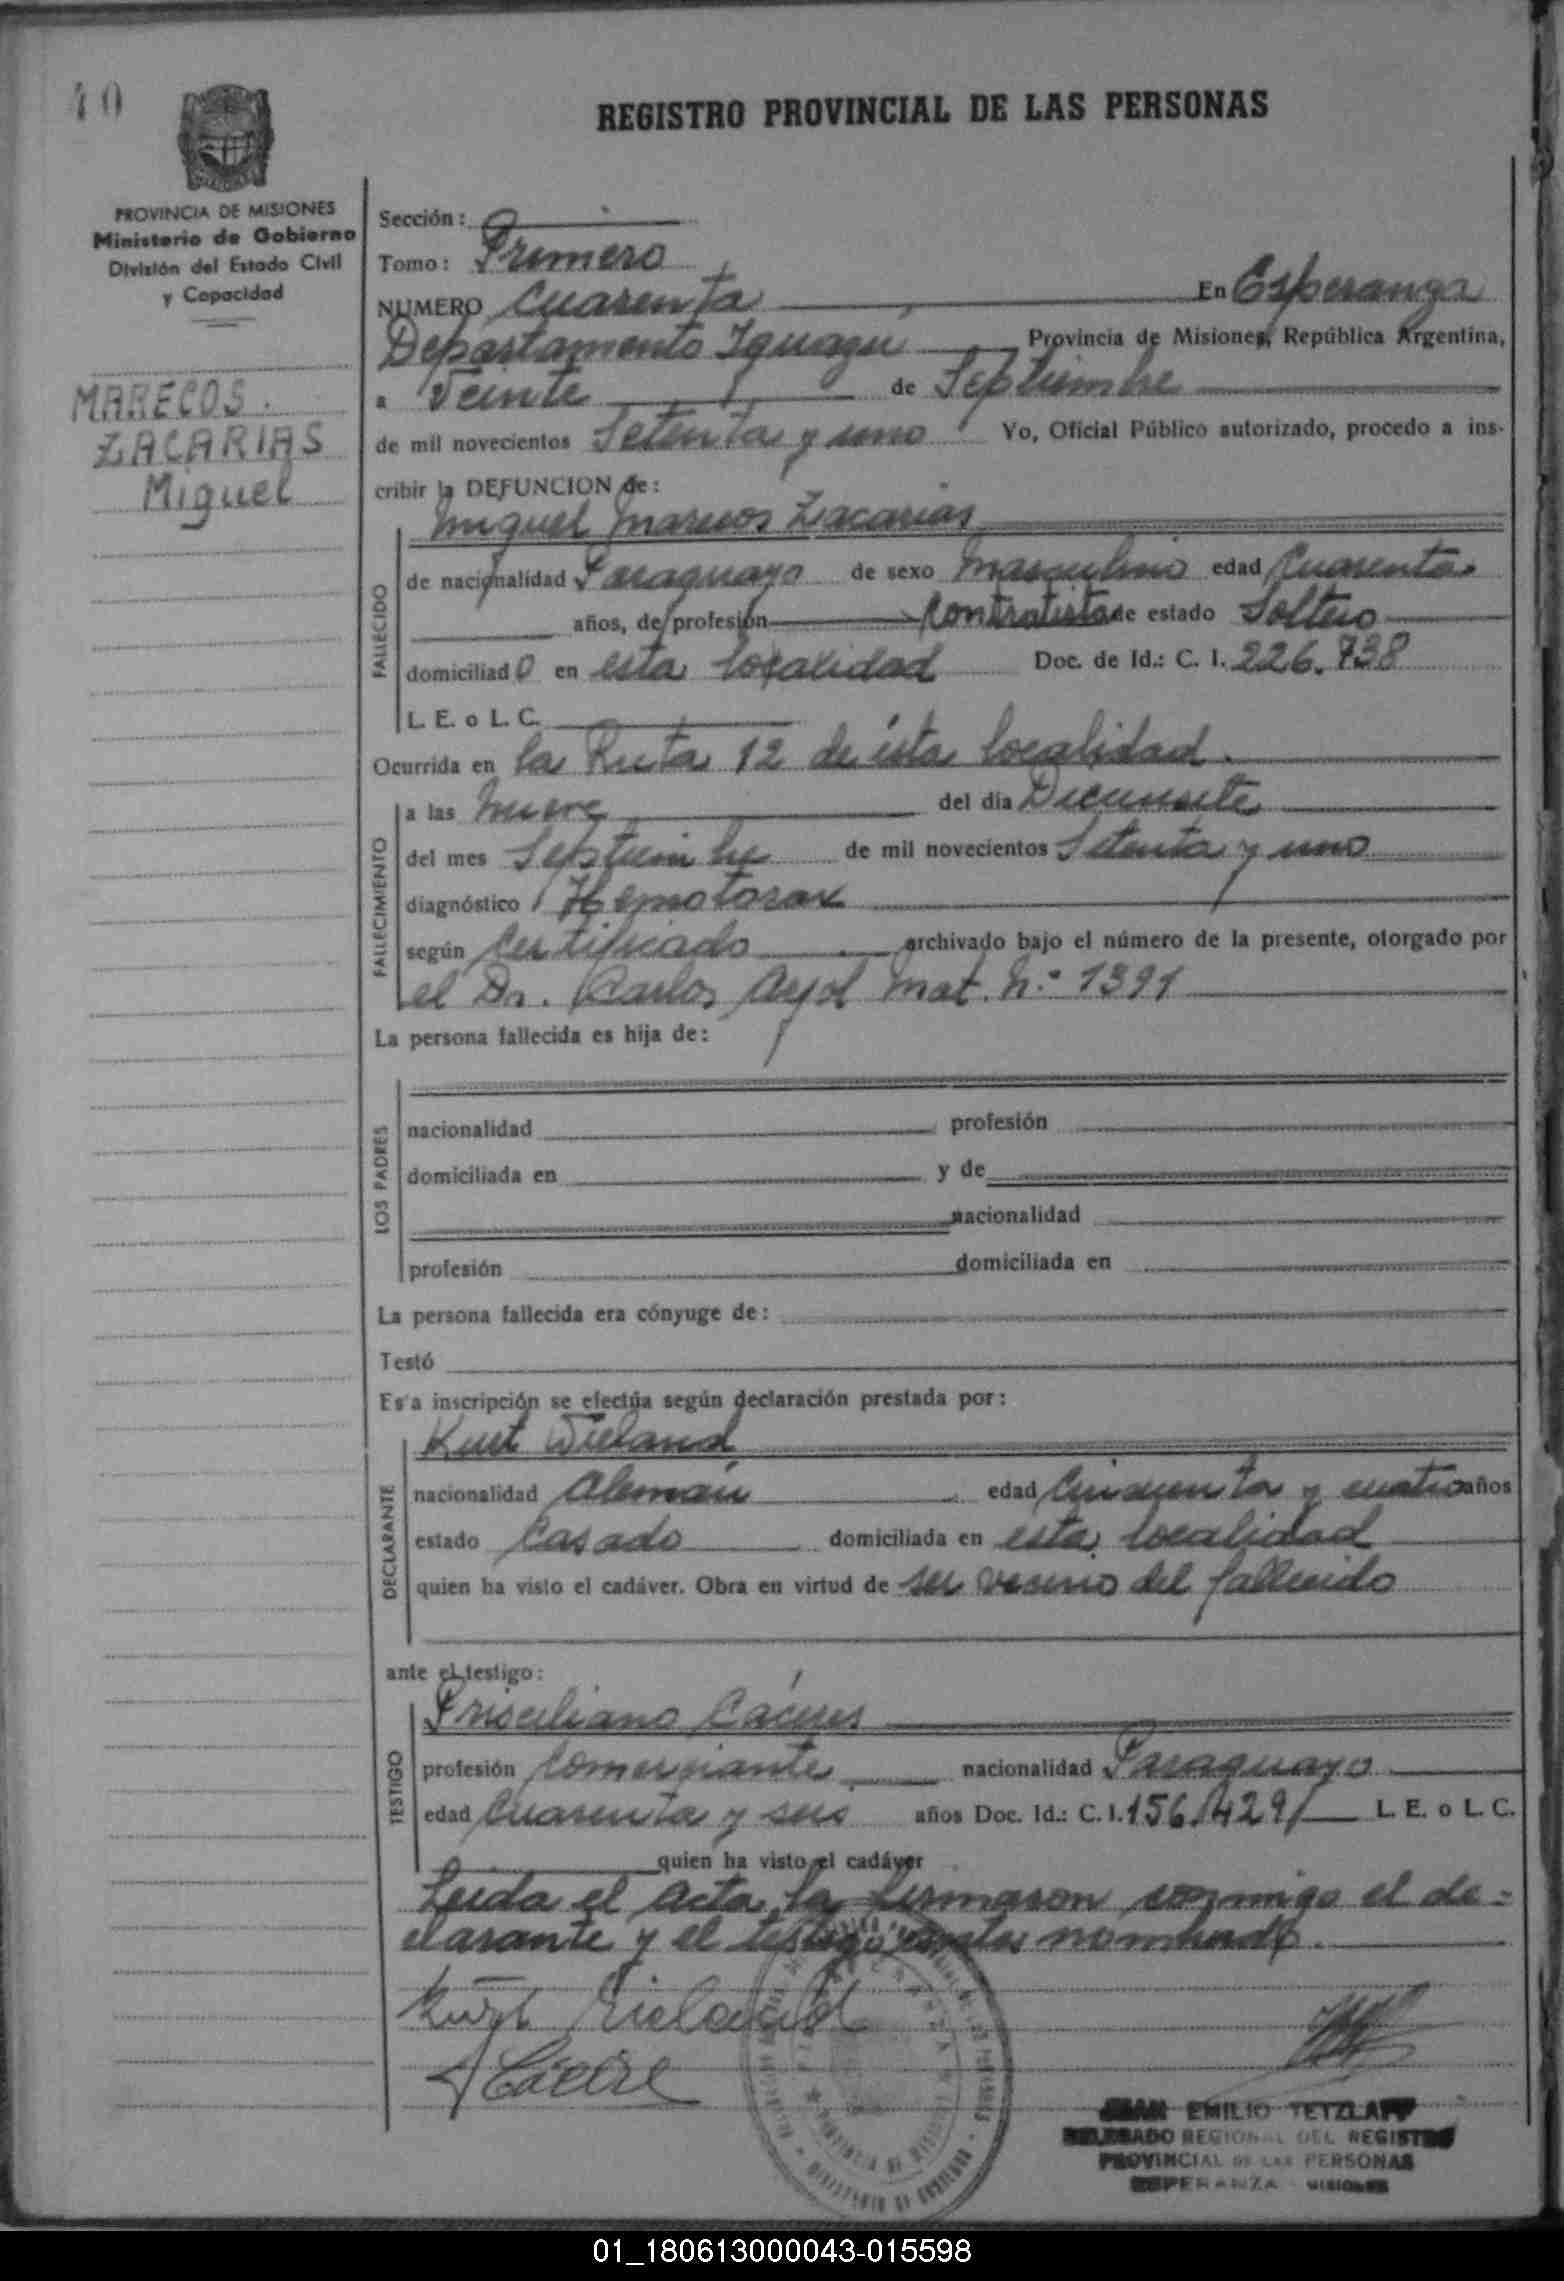 40
REGISTRO PROVINCIAL DE LAS PERSONAS
PROVINCIA DE MISIONES
Ministerio de Gobierno
División del Estado Civil
y Capacidad
MARECOS.
ZACARIAS
Miguel
Sección:
Tomo: Primero
NUMERO Cuarenta En Esperanza
Departamento Iguazú Provincia de Misiones, República Argentina,
a Veinte de Septiembre
de mil novecientos Setenta y uno Yo, Oficial Público autorizado, procedo a ins-
cribir la DEFUNCION de:
Miguel Marecos Zacarias
FALLECIDO
de nacionalidad Paraguayo de sexo Masculino edad Cuarenta
años, de profesión Contratista de estado Soltero
domiciliado en esta localidad Doc. de Id.: C. I. 226.738
L. E. o L. C.
Ocurrida en la Ruta 12 de ésta localidad.
FALLECIMIENTO
a las nueve del día Diecisiete
del mes Septiembre de mil novecientos Setenta y uno
diagnóstico Hemotorax
según Certificado archivado bajo el número de la presente, otorgado por
el Dr. Carlos Mat. N.º 1391
La persona fallecida es hija de:
LOS PADRES
nacionalidad profesión
domiciliada en y de
nacionalidad
profesión domiciliada en
La persona fallecida era cónyuge de:
Testó
Esta inscripción se efectúa según declaración prestada por:
Kurt Wieland
DECLARANTE
nacionalidad Alemán edad Cincuenta y cuatro años
estado Casado domiciliada en esta localidad
quien ha visto el cadáver. Obra en virtud de ser vecino del fallecido
ante el testigo:
Prisciliano Cáceres
TESTIGO
profesión Comerciante nacionalidad Paraguayo
edad Cuarenta y seis años Doc. Id.: C. I. 156.429 L. E. o L. C.
quien ha visto el cadáver
Leida el acta, la firmaron conmigo el de-
clarante y el testigo antes nombrado.
Kurt Wieland
JUAN EMILIO TETZLAFF
DELEGADO REGIONAL DEL REGISTRO
PROVINCIAL DE LAS PERSONAS
ESPERANZA - MISIONES
01_180613000043-015598